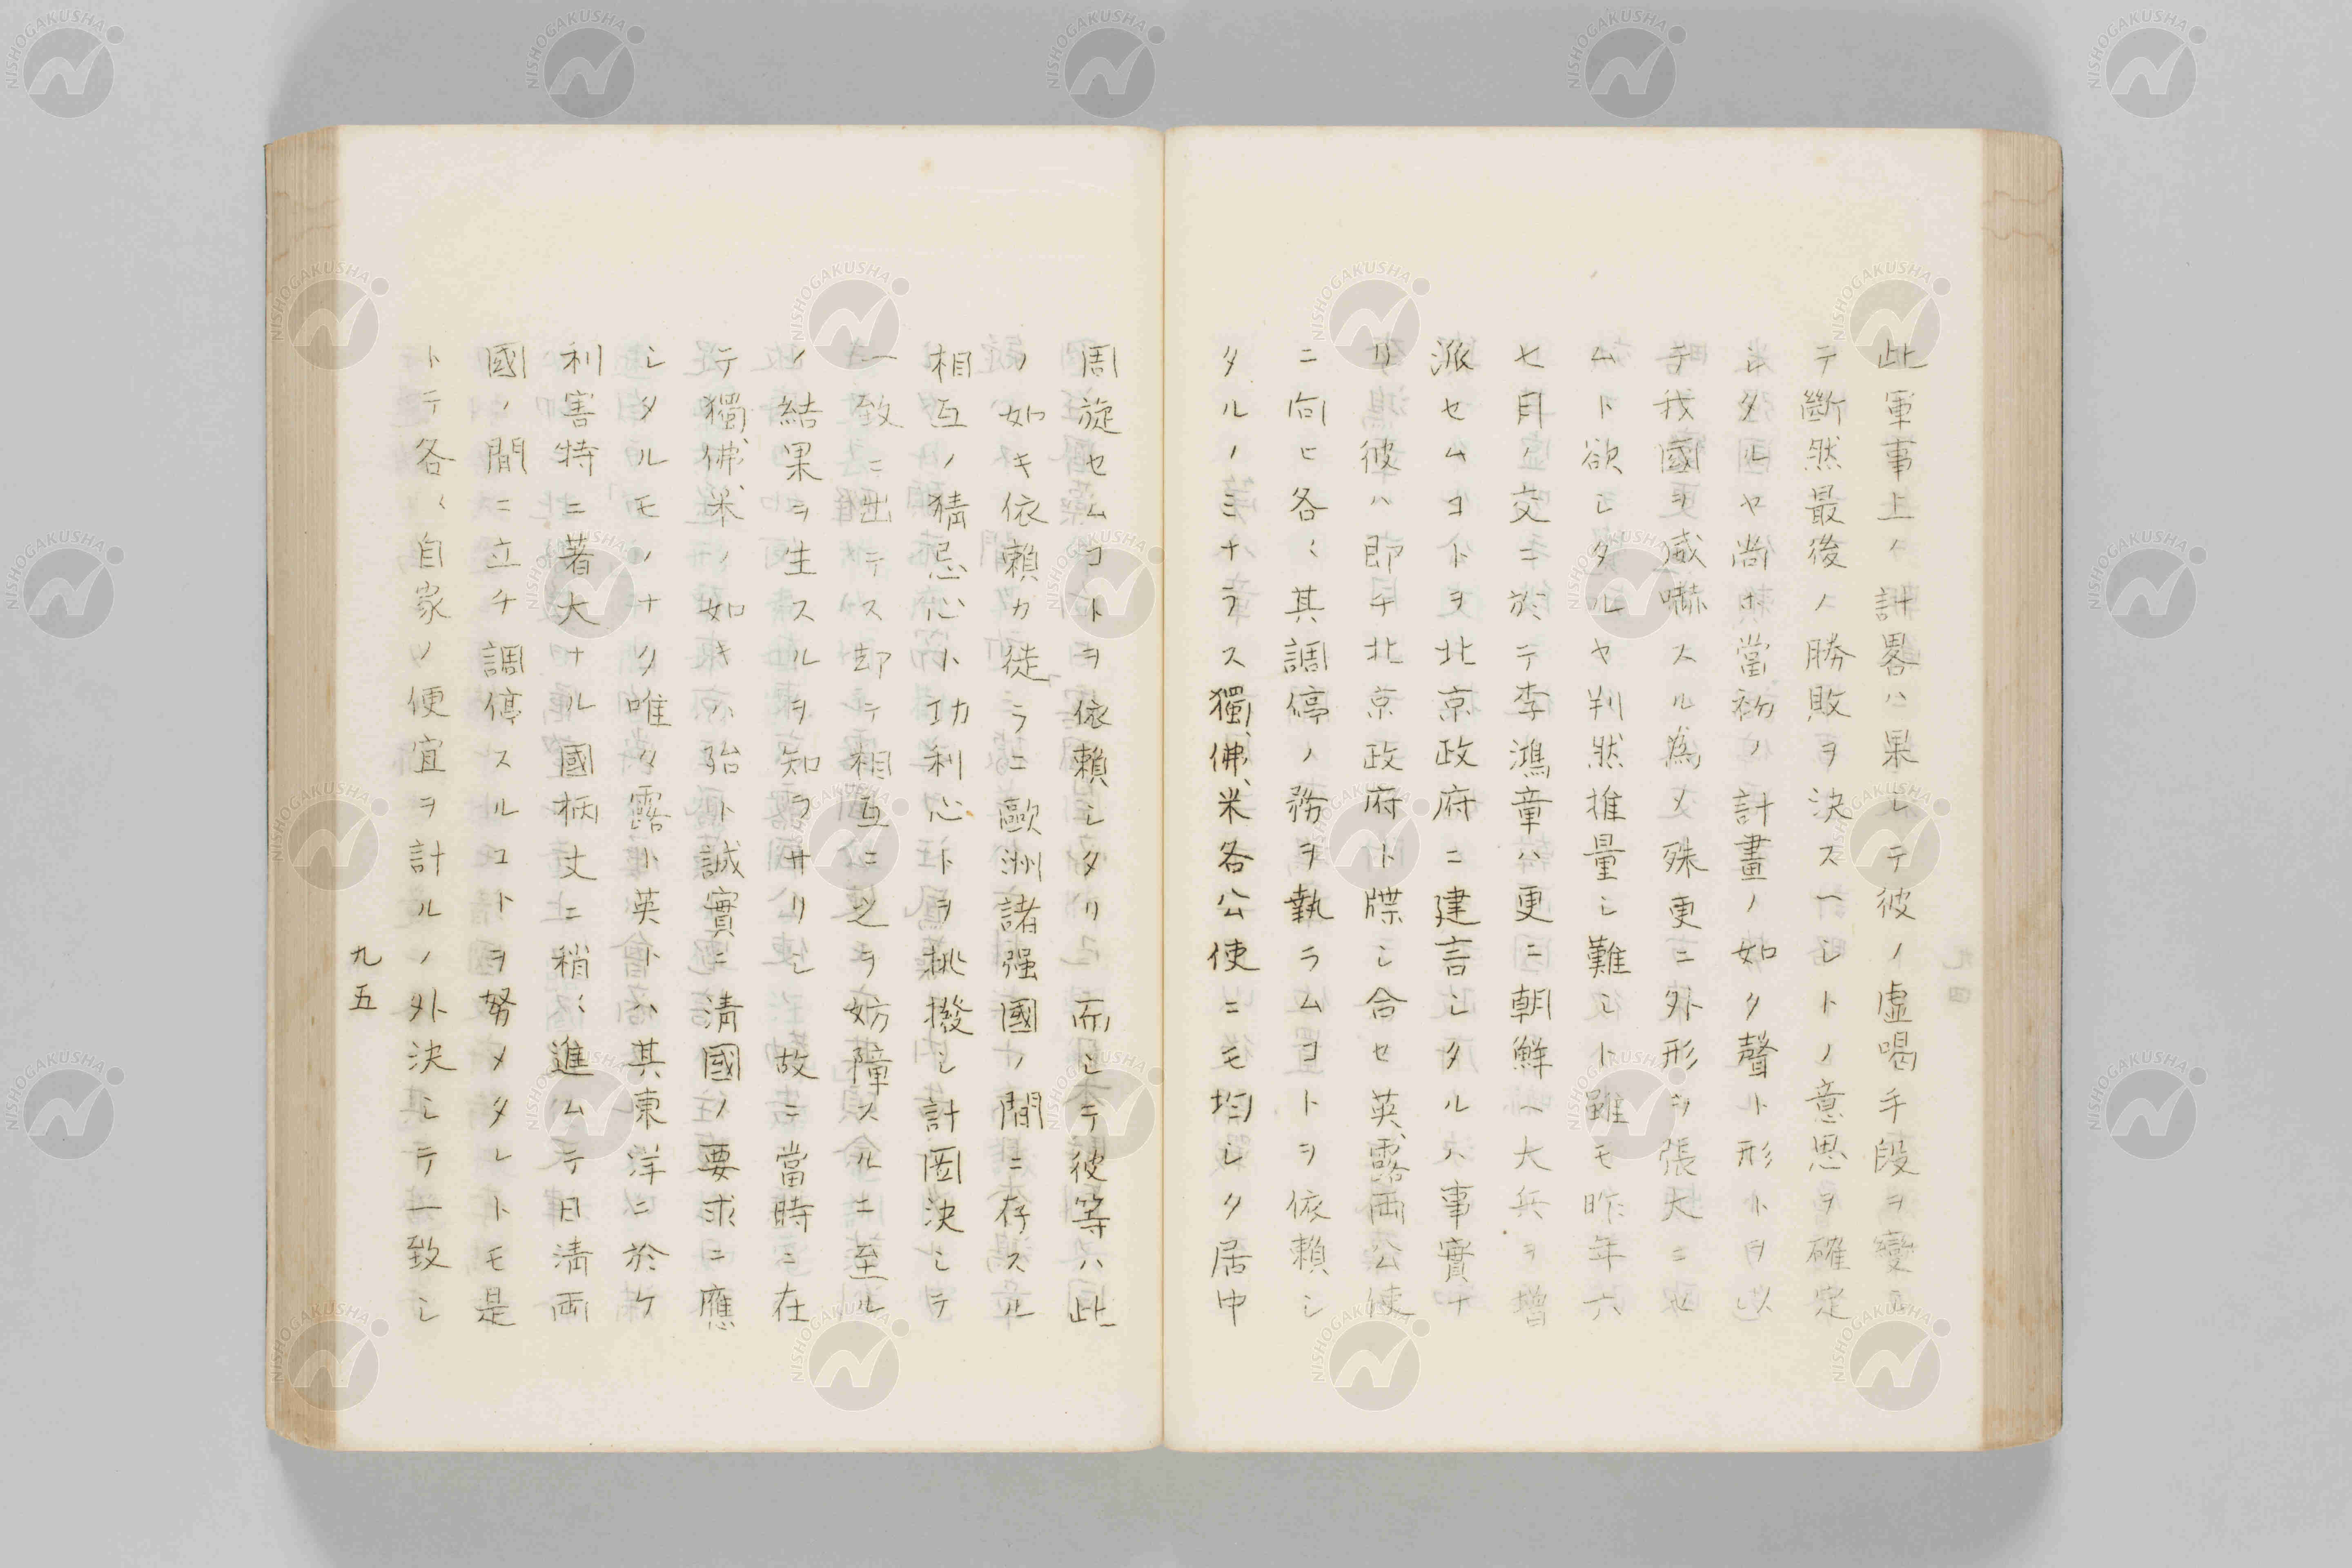 此軍事上ノ計畧ハ果シテ彼ノ虛喝手段ヲ變シ
テ斷然最後ノ勝敗ヲ決スヘシトノ意思ヲ確定
シタルヤ尚ホ當初ノ計畫ノ如ク聲ト形トヲ以
テ我國ヲ威嚇スル為メ殊更ニ外形ヲ張大ニセ
ムト欲シタルヤ判然推量シ難シト雖モ昨年六
七月ノ交ニ於テ李鴻章ハ更ニ朝鮮ヘ大兵ヲ增
派セムコトヲ北京政府ニ建言シタルハ事實ナ
リ彼ハ即チ北京政府ト牒シ合セ英露両公使
ニ向ヒ各〻其調停ノ務ヲ執ラムコトヲ依賴シ
タルノミナラス獨、佛、米各公使ニモ均シク居中
周旋セムコトヲ依賴シタリ而シテ彼等ハ此
ノ如キ依賴カ徒ラニ歐洲諸强國ノ間ニ存スル
相互ノ猜忌心ト功利心トヲ挑撥シ計圖決シテ
一致ニ出テス却テ相互ニ之ヲ妨障スルニ至ル
ノ結果ヲ生スルヲ知ラサリシ故ニ當時ニ在
テ獨、佛、米、ノ如キハ殆ト誠實ニ淸國ノ要求ニ應
シタルモノナク唯タ露ト英トハ其東洋ニ於ケ
利害特ニ著大ナル國柄丈ニ稍〻進ムテ日淸両
國ノ間ニ立チ調停スルコトヲ努メタレトモ是
トテ各〻自家ノ便宜ヲ計ルノ外決シテ一致シ
九五
NISHOGAKUSHA